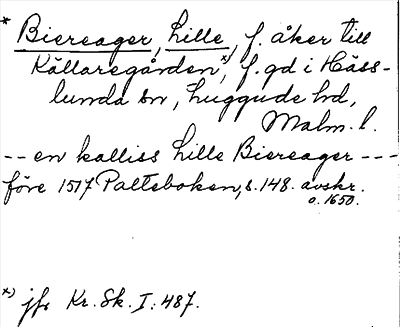 * Biereager, Lille, f. åker till
Källaregården*), f. gd i Häss-
lunda sn, Luggude hd,
Malm. l.
-- en kalliss Lille Biereager ---
före 1517 Palteboken, s. 148. avskr.
o. 1650.
*) jfr Kr. Sk. I: 487.